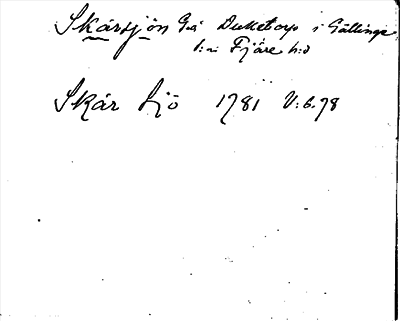 Skårsjön Gnå Duketorp i Gällinge
s:n Fjäre h:d
Skår Sjö 1781 V:6.78